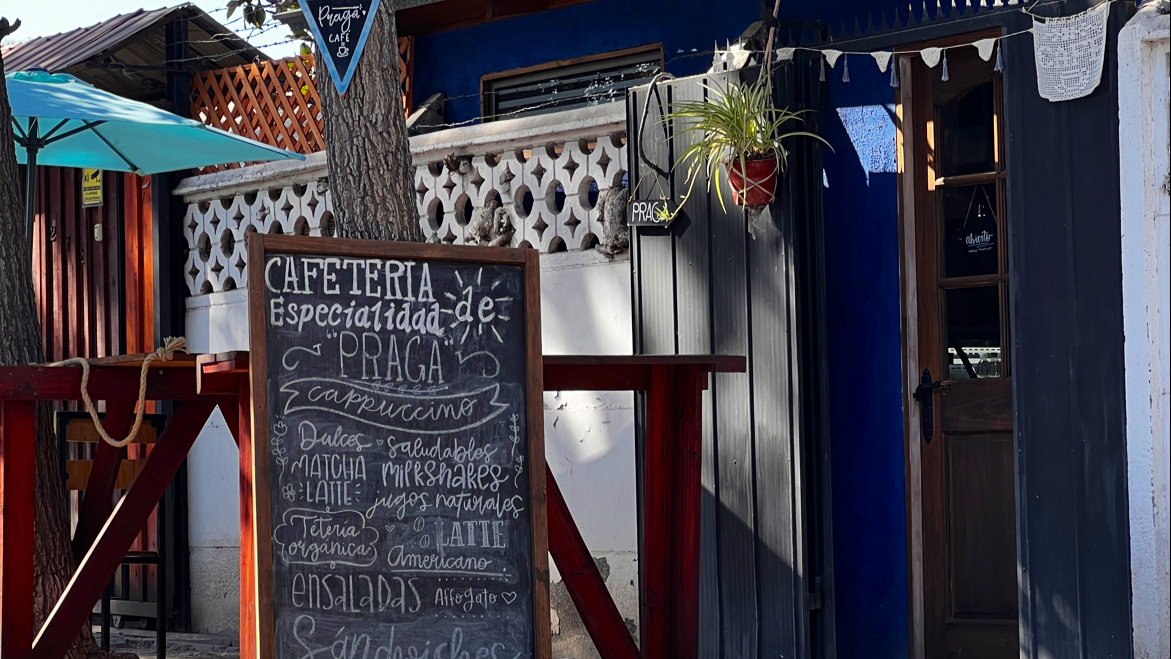 Praga
CAFE
PRAGA
abierto
CAFETERIA
Especialidad de
"PRAGA"
cappuccino
Dulces saludables
MATCHA LATTE
milkshakes
jugos naturales
Tetería orgánica
LATTE
Americano
ensaladas
Affogato
Sándwiches